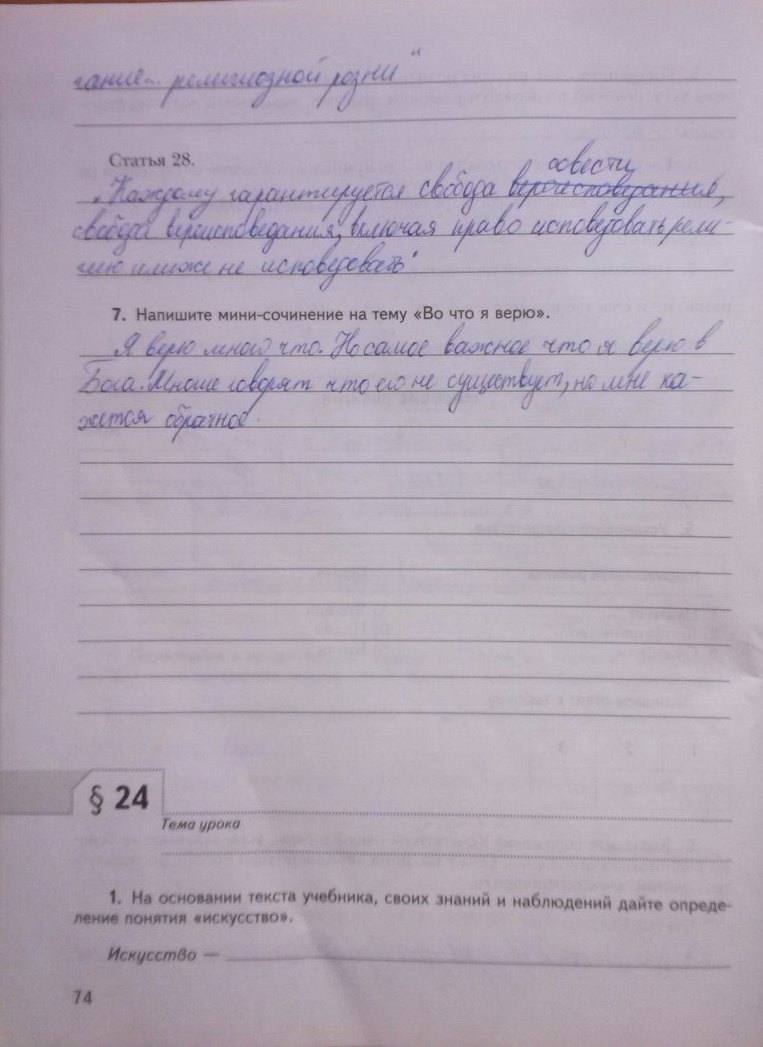 религиозной розни"
Статья 28.
совести
"Каждому гарантируется свобода вероисповедания,
свобода вероисповедания, включая право исповедовать рели-
гию или же не исповедовать"
7. Напишите мини-сочинение на тему «Во что я верю».
Я верю много что. Но самое важное что я верю в
Бога. Многие говорят что его не существует, но мне ка-
жется обратное.
§ 24
Тема урока
1. На основании текста учебника, своих знаний и наблюдений дайте опреде-
ление понятия «искусство».
Искусство —
74